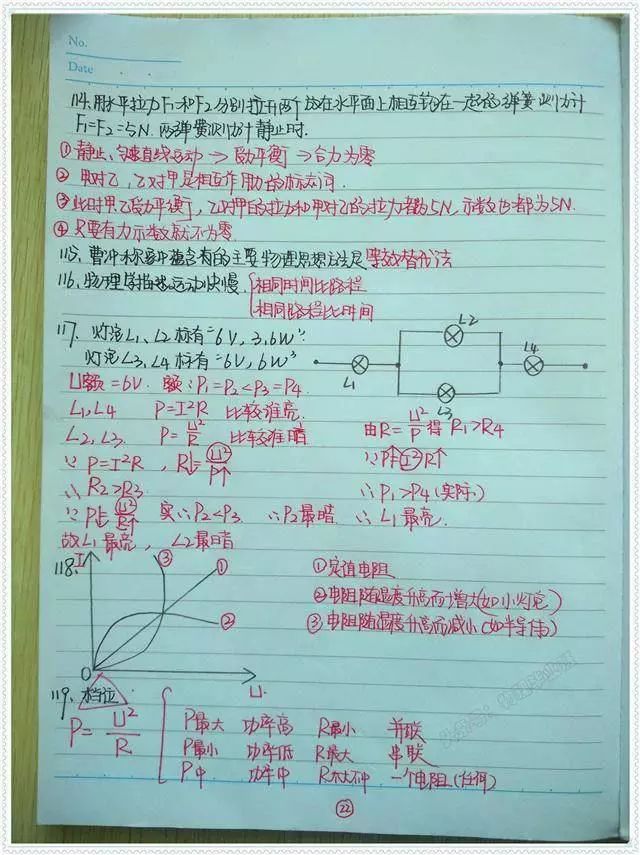 No.
Date
114、用水平拉力F₁和F₂分别拉开两个放在水平面上相互钩在一起的弹簧测力计
F₁=F₂=5N. 两弹簧测力计静止时.
①静止、匀速直线运动 → 受力平衡 → 合力为零
② 甲对乙,乙对甲是相互作用力的标志词.
③此时甲乙受力平衡,乙对甲的拉力和甲对乙的拉力都为5N,示数也都为5N.
④只要有力示数就不为零.
115、曹冲称象中蕴含有的主要物理思想方法是等效替代法
116、物理学描述运动快慢 相同时间比路程
相同路程比时间
117、灯泡L₁、L₂标有“6V,3.6W”
灯泡L3,L4标有“6V,6W”
L1 L2 L3 L4
U额=6V. 额:P₁=P₂<P₃=P4.
L₁,L4 P=I²R 比较谁亮.
L2,L3. P=U²/R 比较谁暗
∵ P=I²R, R↓=U²/P↑
∴ R2>R3
∵ P↓=U²/R↑ 实∴P₂<P₃ ∴P₂最暗
故L₁最亮, L2最暗
由R=U²/P 得 R₁>R4
∵P↑=I²R↑
∴P₁>P4(实际)
∴L₁最亮.
118、
I
③
①
②
O
U
①定值电阻
②电阻随温度升高而增大(如小灯泡)
③电阻随温度升高而减小(如半导体)
119、档位
P=U²/R
P最大 功率高 R最小 并联
P最小 功率低 R最大 串联
P中 功率中 R不大不小 一个电阻(任何)
22